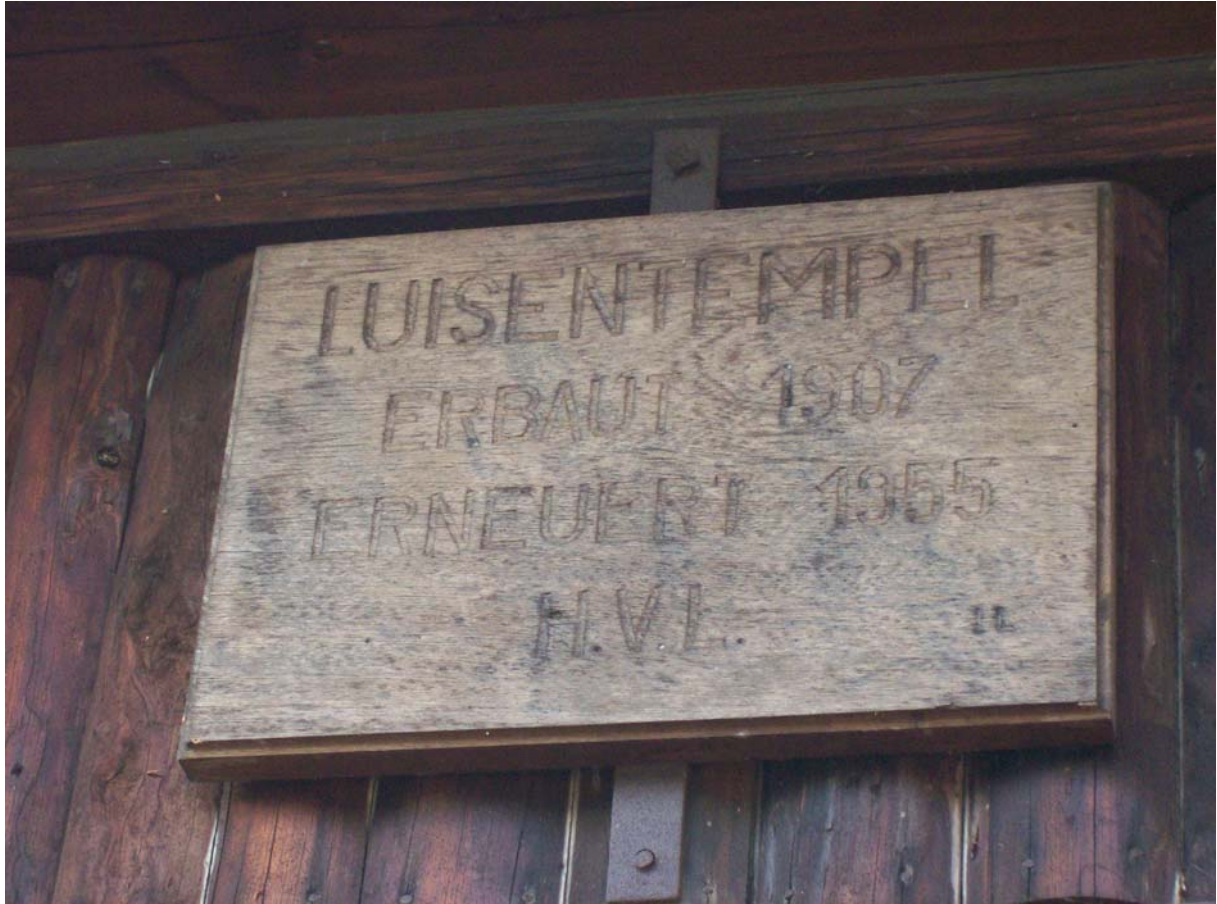 LUISENTEMPEL
ERBAUT 1907
ERNEUERT 1955
H.V.L.